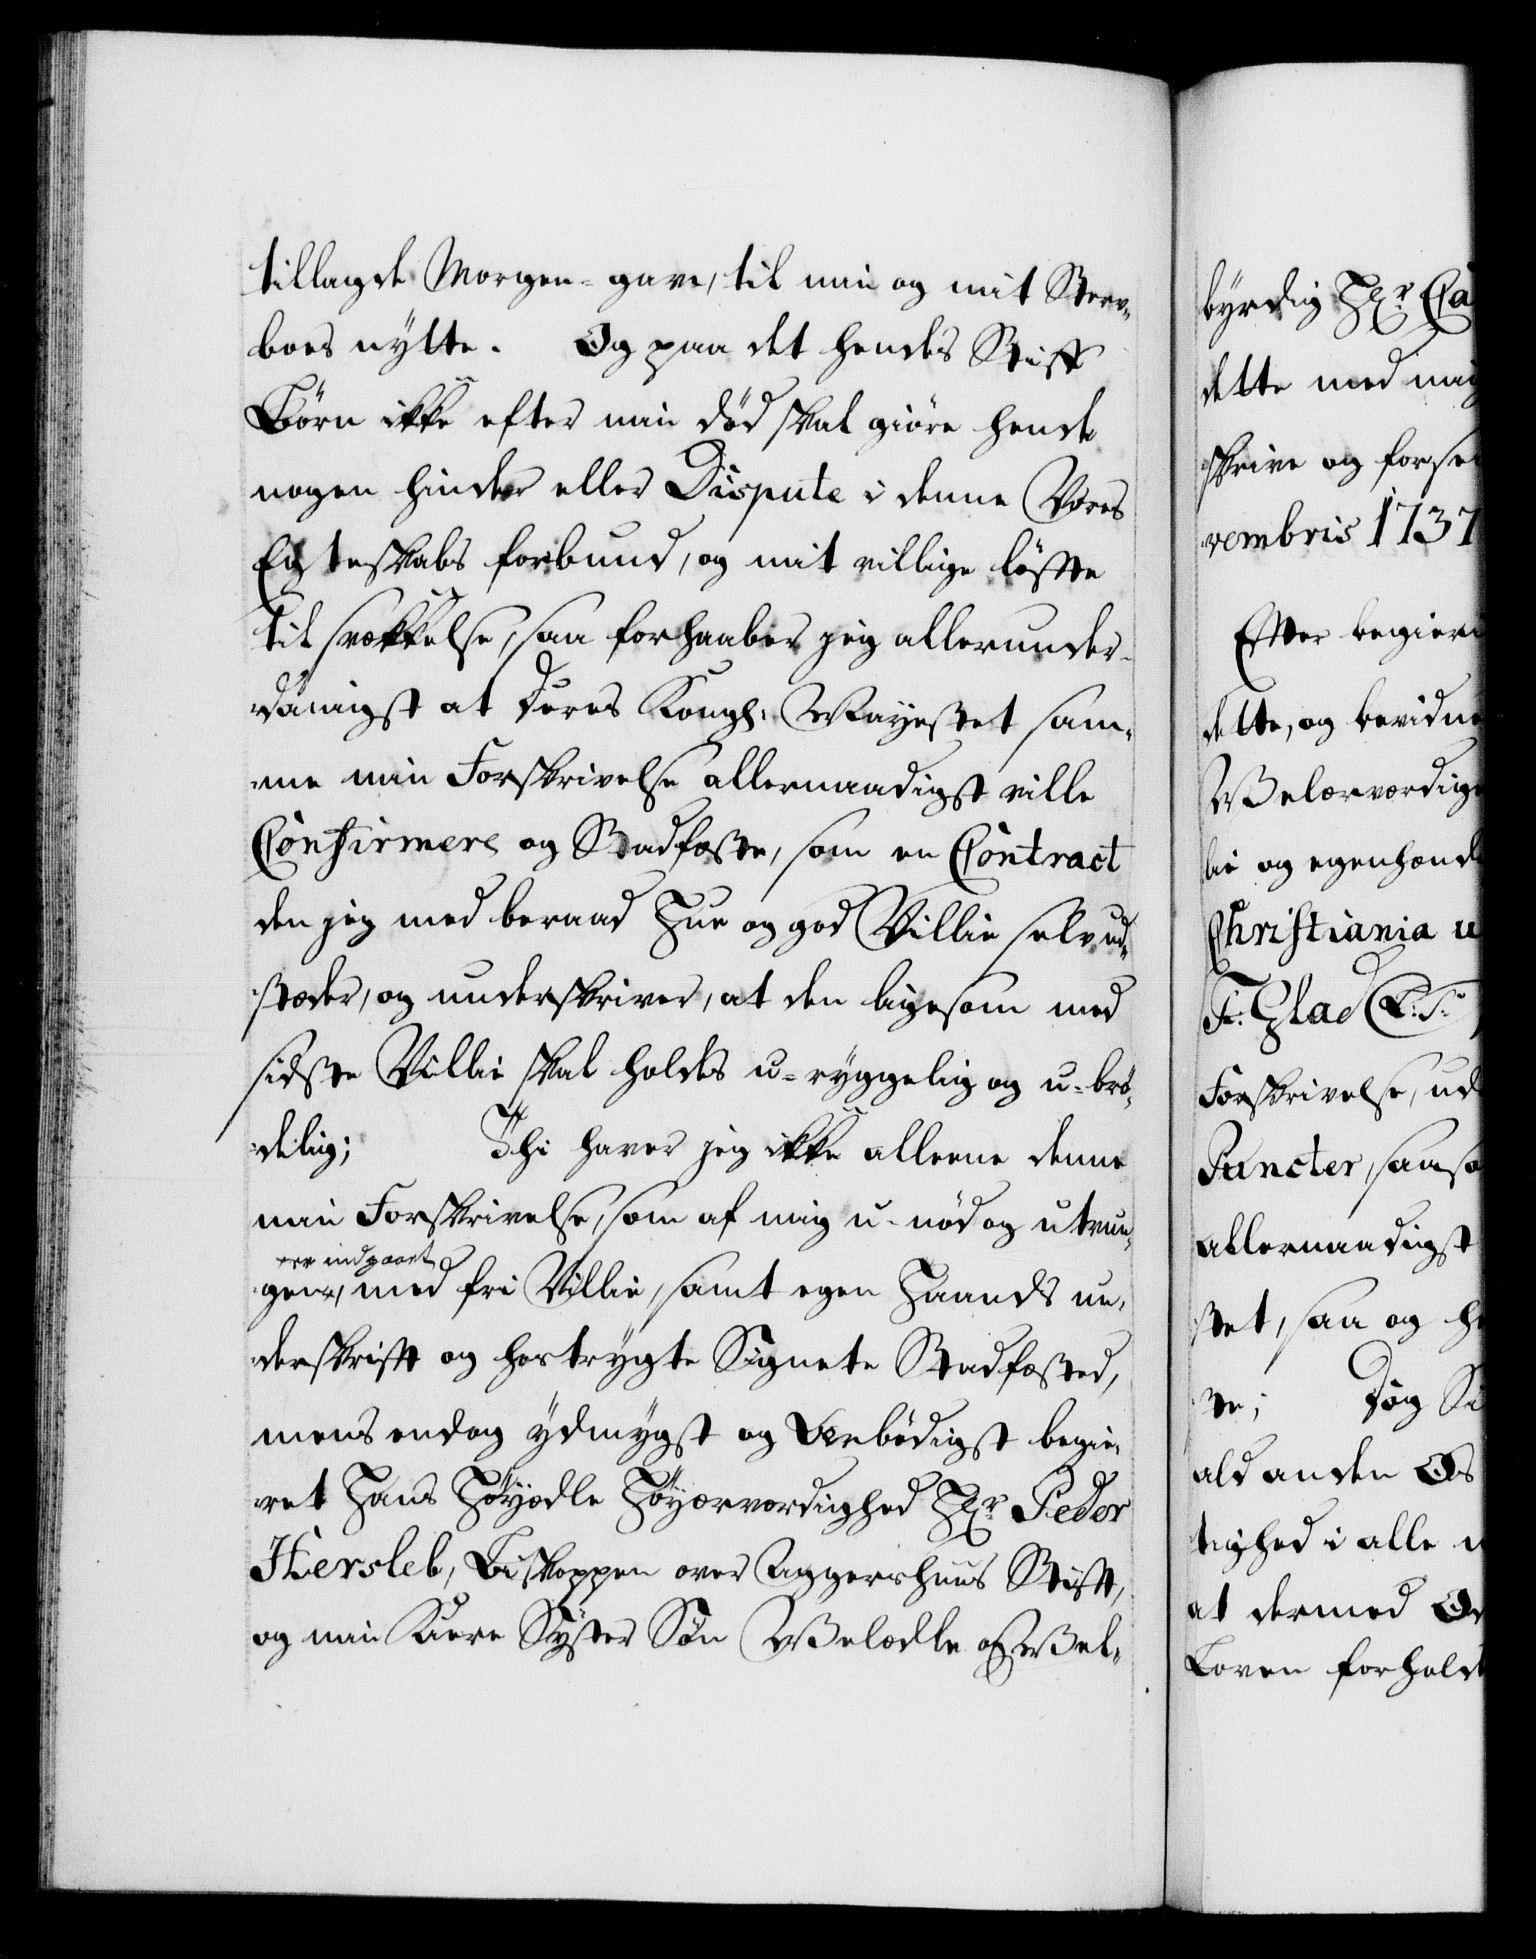 tillagde Morgen-gave, til min og mit Sterv-
boes nytte. Og paa det hendes Stiff
Börn ikke efter min död skal giöre hende
nogen hinder eller Dispute i denne Vores
Egteskabs forbund, og mit villige löffte
til svækkelse, saa forhaaber jeg allerunder-
danigst at Deres Kongl: Mayestet sam-
me min Forskrivelse allernaadigst ville
Confirmere og Stadfæste, som en Contract
den jeg med beraad Hue og god Villie selv ud-
stæder, og underskriver, at den ligesom med
sidste Villie skal holdes u-ryggelig og u-brö-
delig; Thi haver jeg ikke alleene denne
min Forskrivelse, som af mig u-nöd og utvun-
gen, med fri Villie, samt egen Haands un-
derskrifft og hostrygte Signete Stadfæsted,
mens endog ydmygst og Ærbödigst begie-
ret Hans Höyædle Höyærværdighed Hr. Peder
Hersleb, Biskoppen over Aggershuus Stifft,
og min Kiere Syster Sön Welædle og Wel-
byrdig Hr. Ca
dette med mig
skrive og forse
vembris 1737
Effter begiering
dette, og bevidne
Welærværdige
lie og egenhænd
Christiania u
F: Glad (L.S.)
Forskrivelse, ud
Puncter, saaso
allernaadigst
stet, saa og he
te; Dog Si
ald anden Os
tighed i alle m
at dermed Ov
Loven forhold